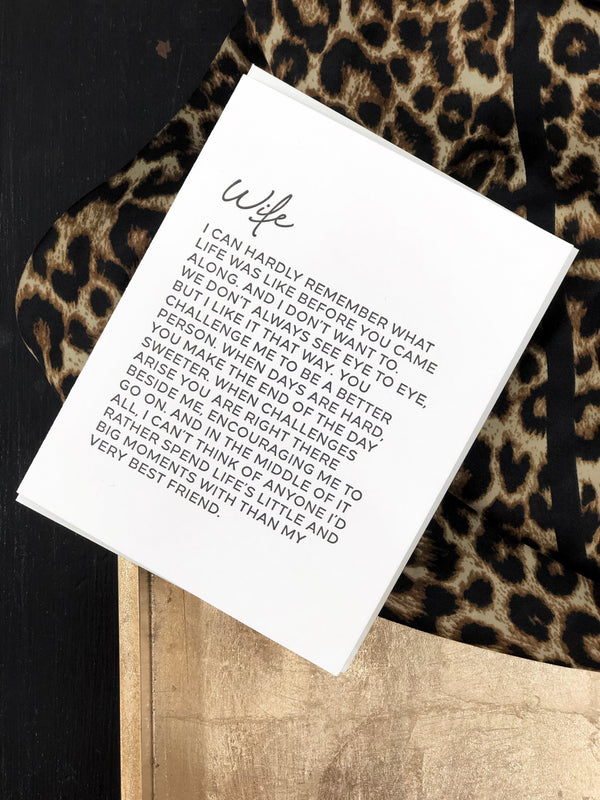 Wife
I CAN HARDLY REMEMBER WHAT
LIFE WAS LIKE BEFORE YOU CAME
ALONG. AND I DON'T WANT TO.
WE DON'T ALWAYS SEE EYE TO EYE,
BUT I LIKE IT THAT WAY. YOU
CHALLENGE ME TO BE A BETTER
PERSON. WHEN DAYS ARE HARD,
YOU MAKE THE END OF THE DAY
SWEETER. WHEN CHALLENGES
ARISE YOU ARE RIGHT THERE
BESIDE ME, ENCOURAGING ME TO
GO ON. AND IN THE MIDDLE OF IT
ALL, I CAN'T THINK OF ANYONE I'D
RATHER SPEND LIFE'S LITTLE AND
BIG MOMENTS WITH THAN MY
VERY BEST FRIEND.